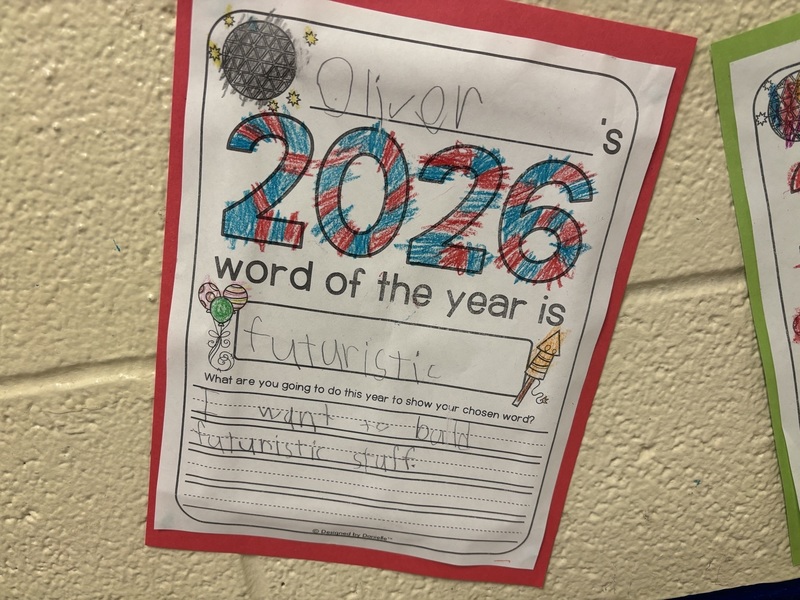 Oliver's
2026
word of the year is
futuristic
What are you going to do this year to show your chosen word?
I want to build
futuristic stuff.